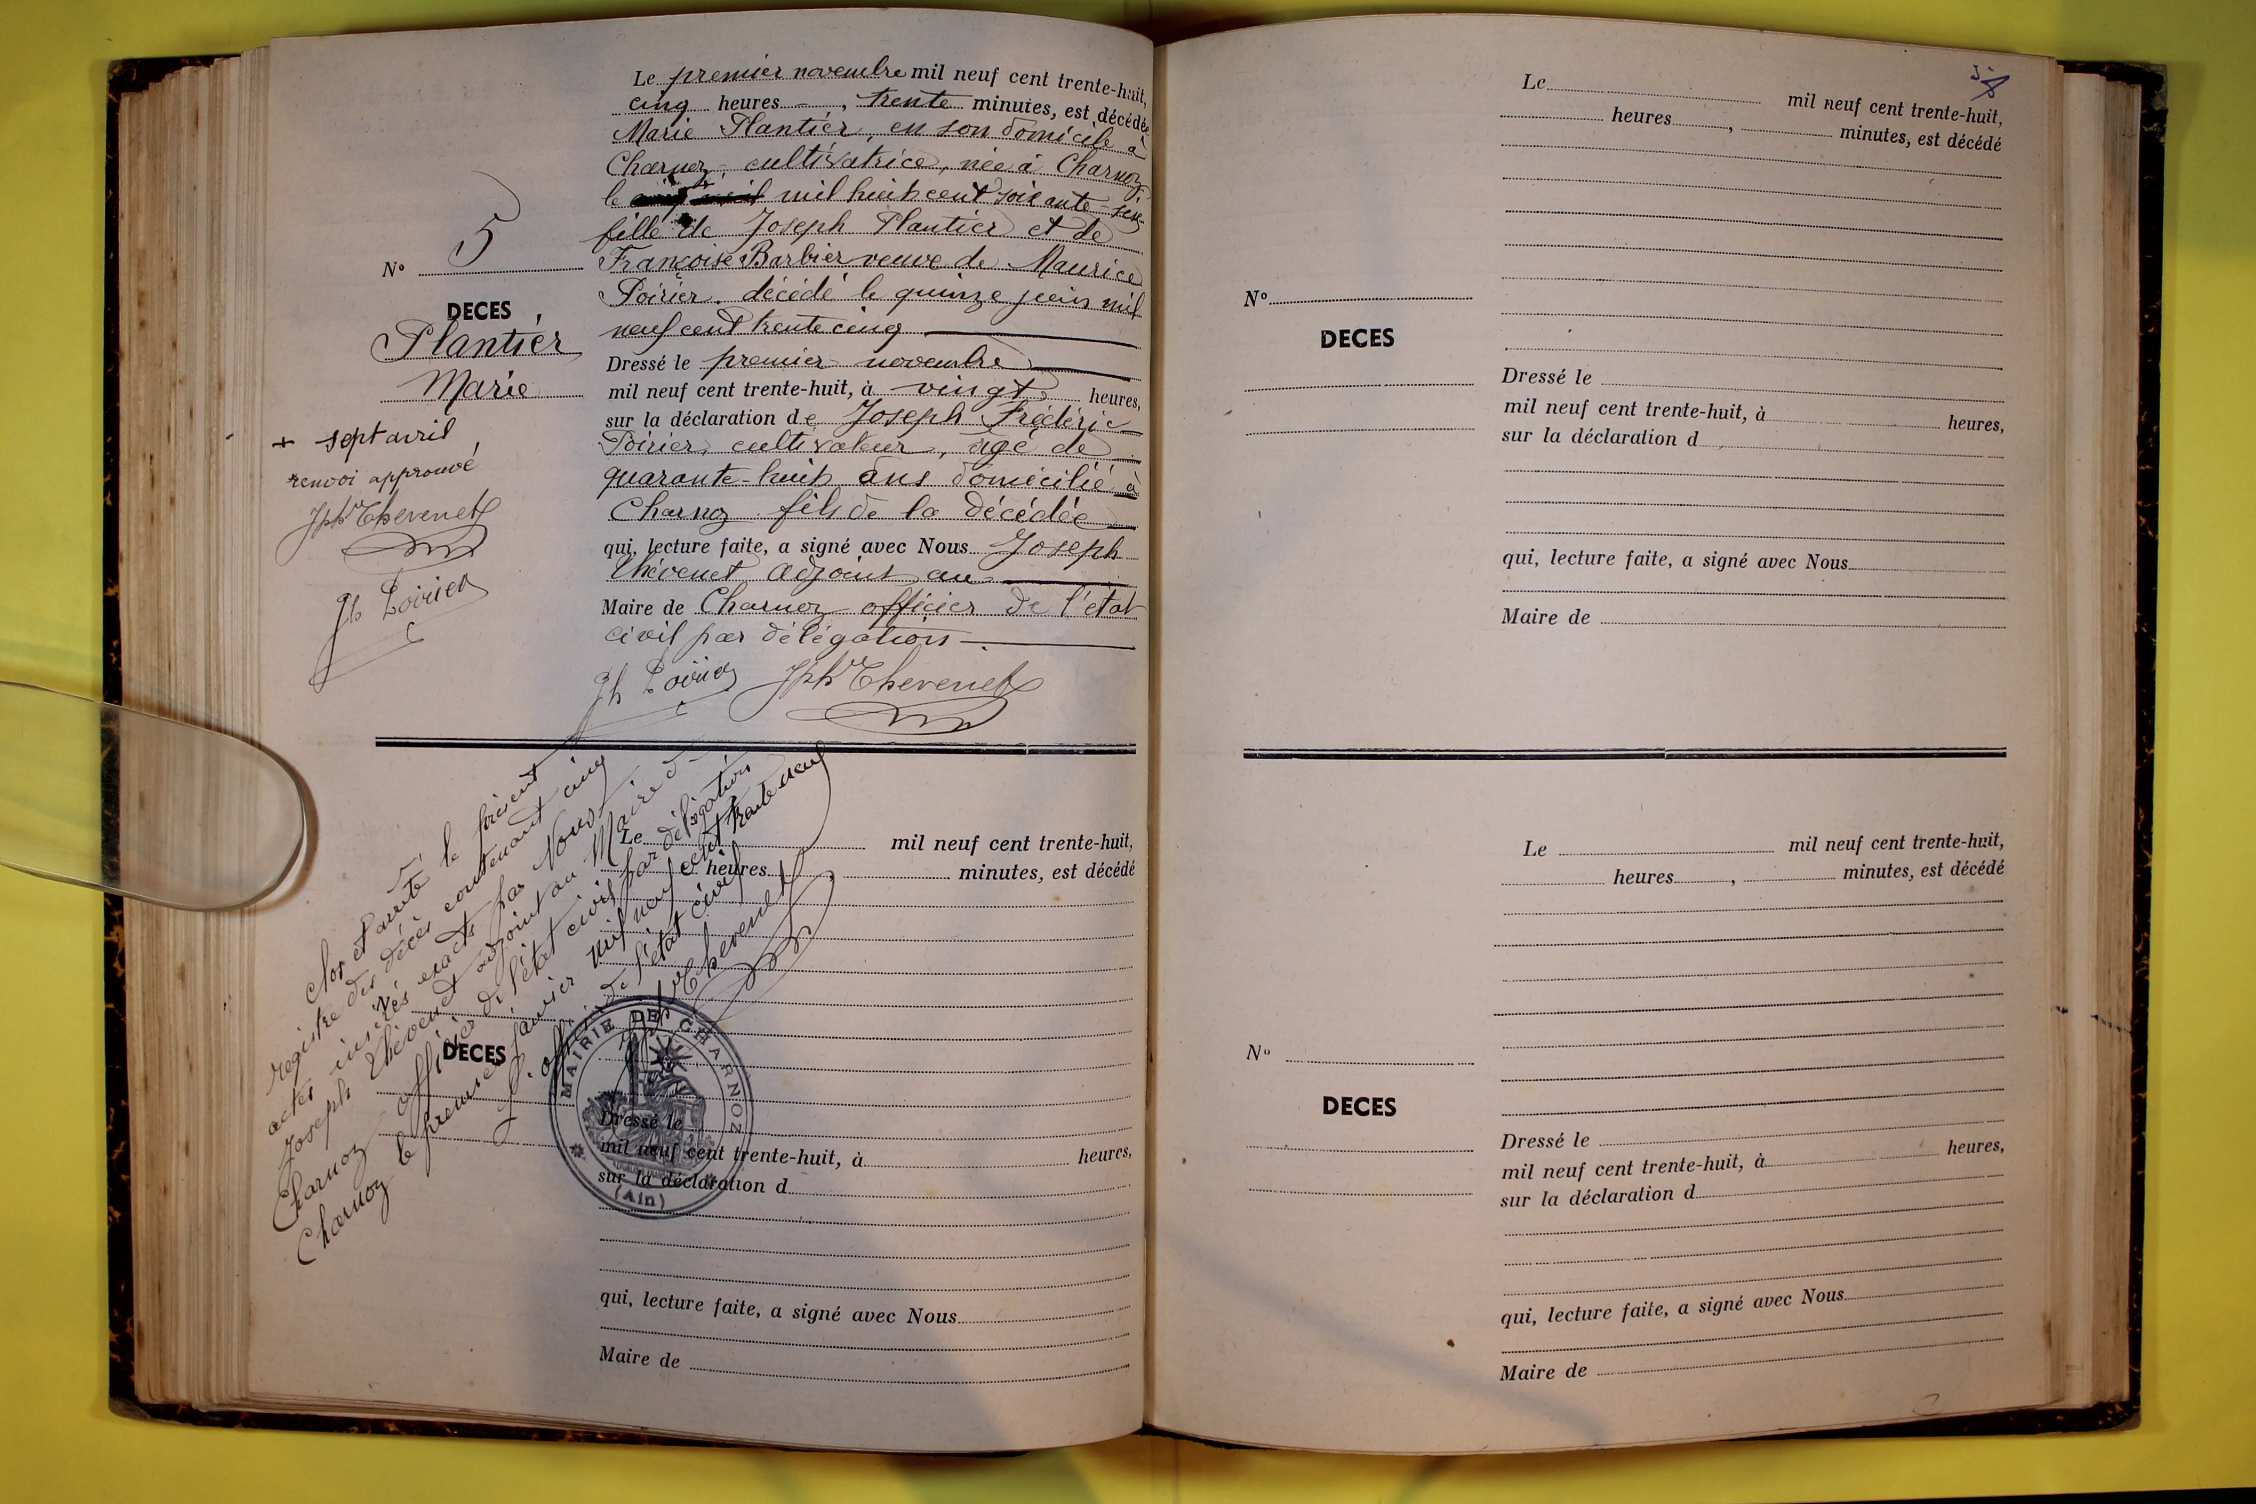 Le premier novembre mil neuf cent trente-huit,
cinq heures - , trente minutes, est décédée
Marie Plantier, en son domicile à
Charnoz, cultivatrice, née à Charnoz
le mil huit cent soixante-
fille de Joseph Plantier et de
Françoise Barbier veuve de Maurice
Poirier. décédé le quinze juin mil
neuf cent trente cinq
Dressé le premier novembre
mil neuf cent trente-huit, à vingt heures,
sur la déclaration de Joseph Frédéric
Poirier, cultivateur, âgé de
quarante-huit ans domicilié à
Charnoz fils de la décédée
qui, lecture faite, a signé avec Nous Joseph
Thévenet adjoint au
Maire de Charnoz officier de l'état
civil par délégation
Jh Poirier Jph Thevenet
N° 5
DECES
Plantier
Marie
+ sept avril
renvoi approuvé
Jph Thevenet
Jh Poirier
Clos et arrêté le présent
registre des décès contenant cinq
actes insérés exacts par Nous
Joseph Thévenet adjoint au Maire de
Charnoz officier de l'état civil par délégation
Charnoz le premier janvier mil neuf cent trente neuf
L'officier de l'état civil
Jph Thevenet
MAIRIE DE CHARNOZ
(Ain)
Le mil neuf cent trente-huit,
heures , minutes, est décédé
DECES
Dressé le
mil neuf cent trente-huit, à heures,
sur la déclaration d
qui, lecture faite, a signé avec Nous
Maire de
Le mil neuf cent trente-huit,
heures , minutes, est décédé
N°
DECES
Dressé le
mil neuf cent trente-huit, à heures,
sur la déclaration d
qui, lecture faite, a signé avec Nous
Maire de
Le mil neuf cent trente-huit,
heures , minutes, est décédé
N°
DECES
Dressé le
mil neuf cent trente-huit, à heures,
sur la déclaration d
qui, lecture faite, a signé avec Nous
Maire de